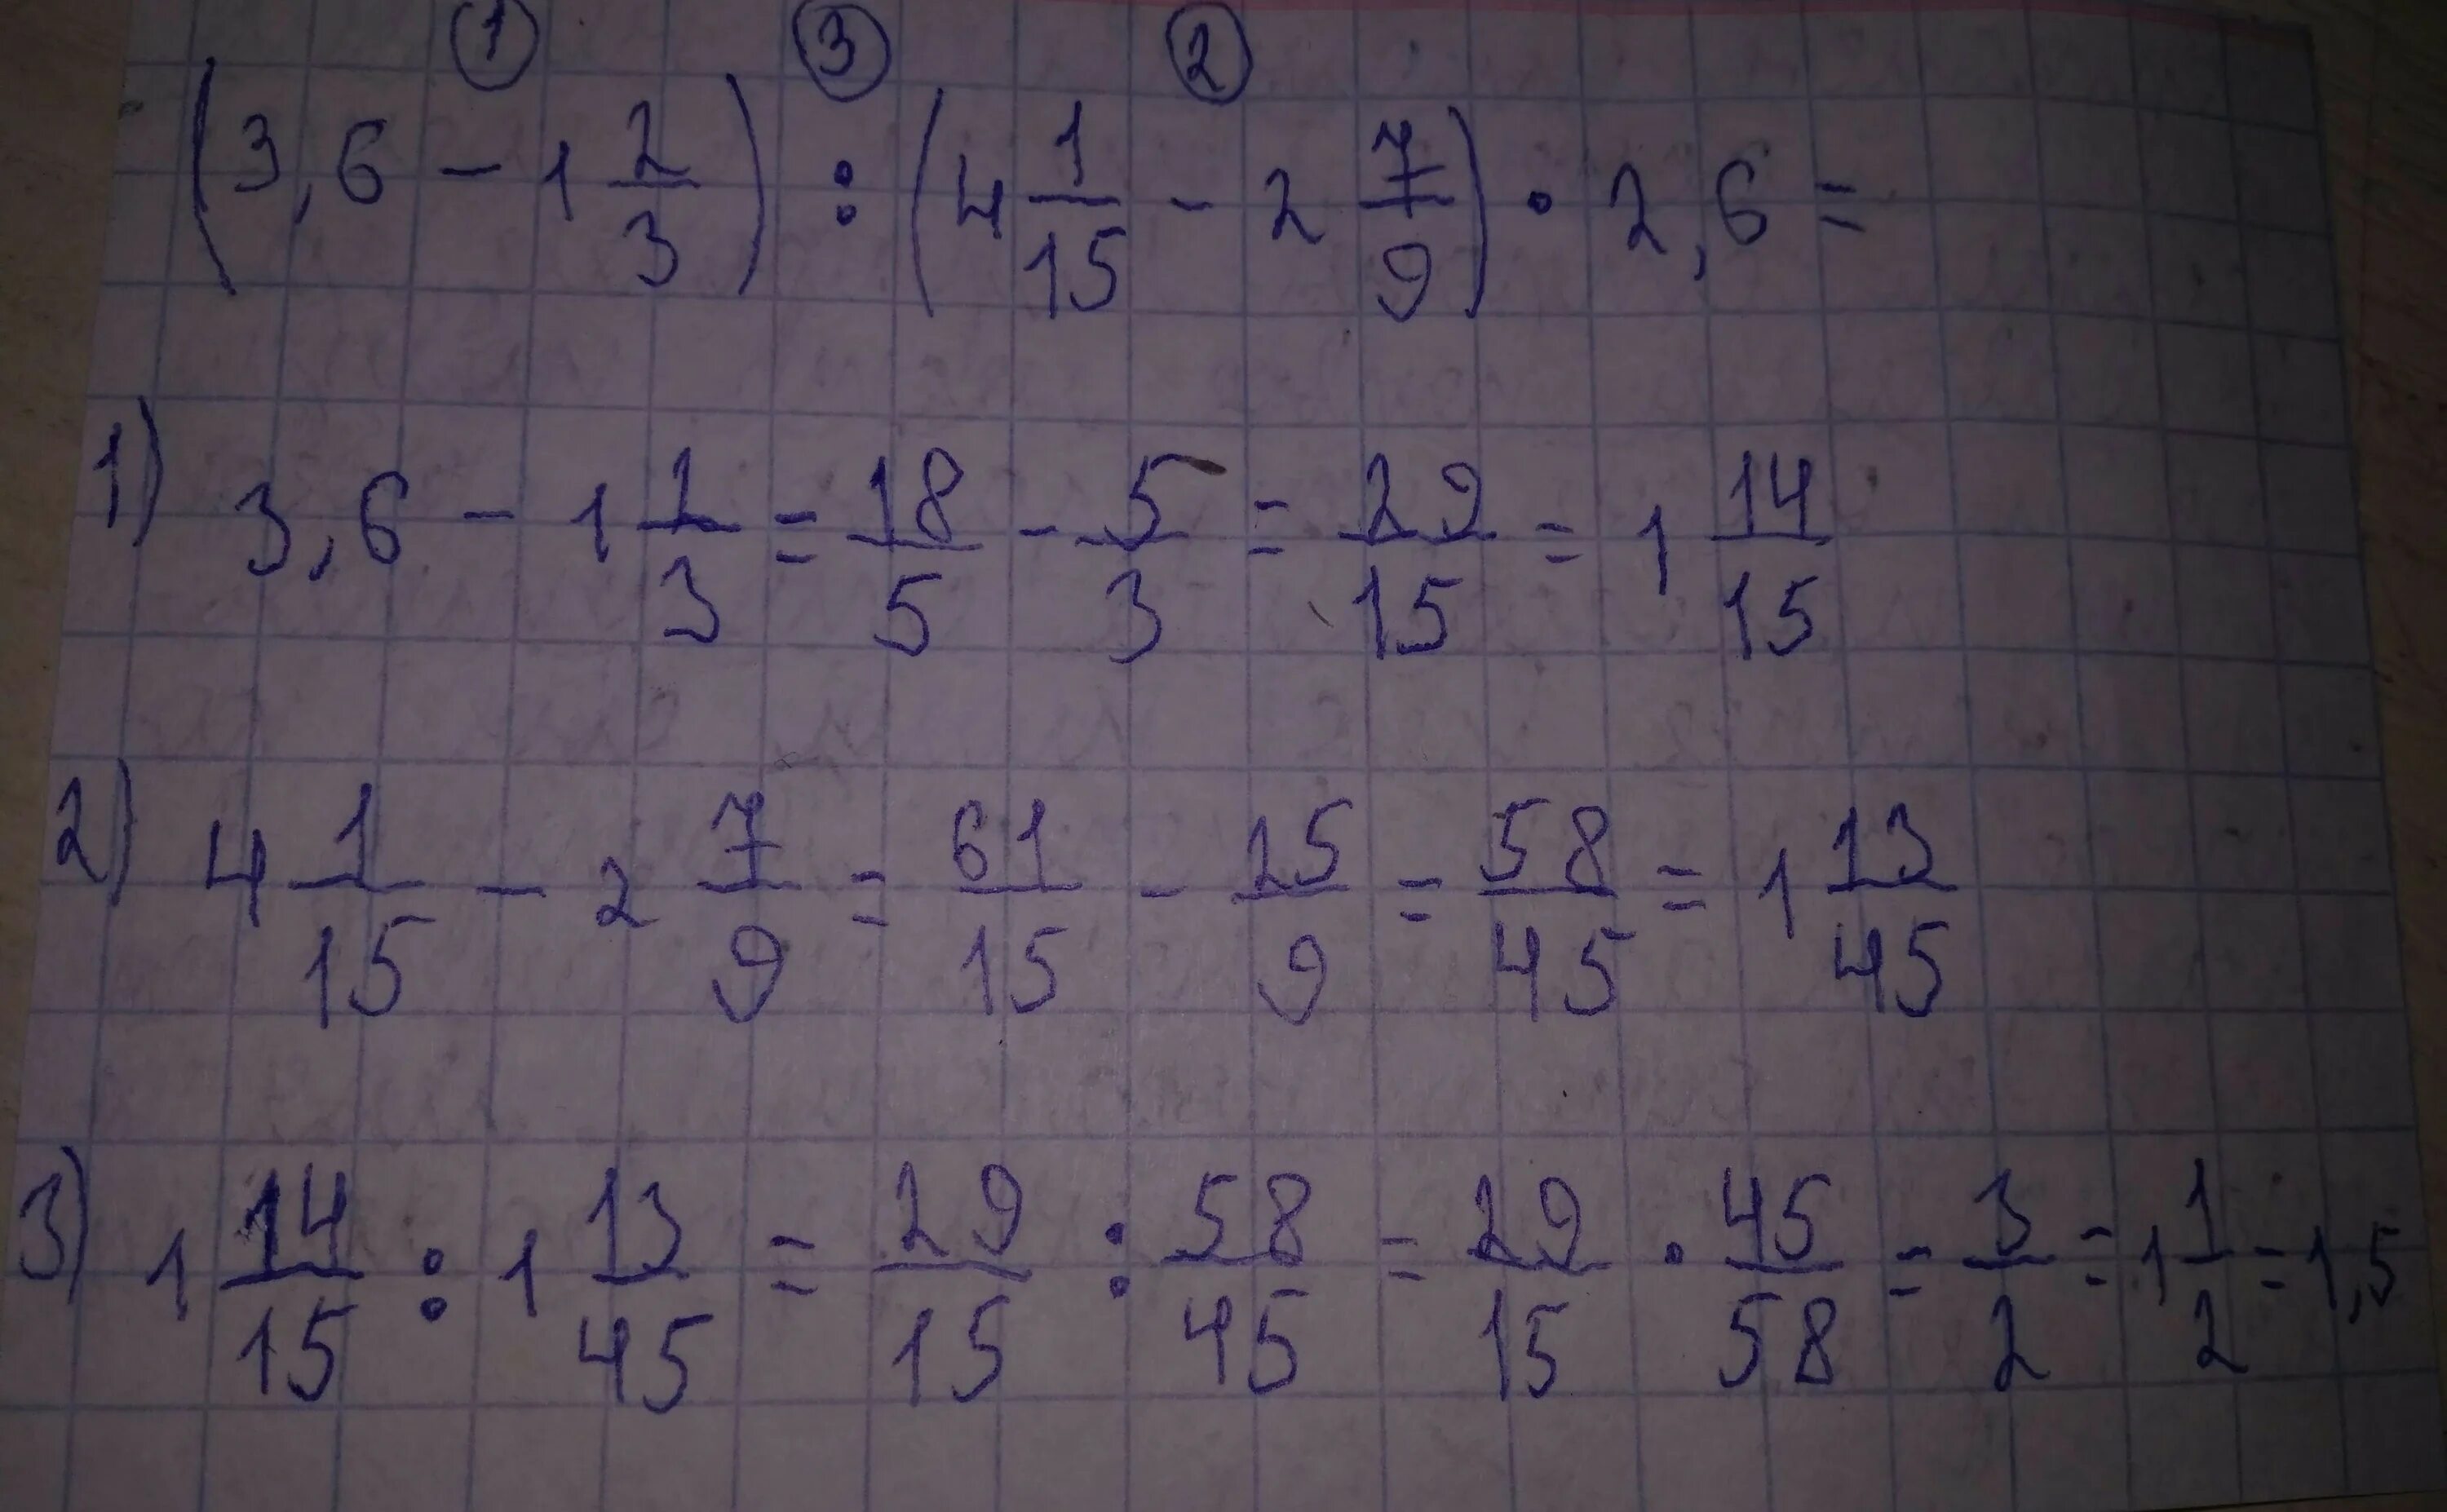 ① ③ ②
(3,6 - 1 2/3) : (4 1/15 - 2 7/9) · 2,6 =
1) 3,6 - 1 2/3 = 18/5 - 5/3 = 29/15 = 1 14/15
2) 4 1/15 - 2 7/9 = 61/15 - 25/9 = 58/45 = 1 13/45
3) 1 14/15 : 1 13/45 = 29/15 : 58/45 = 29/15 · 45/58 = 3/2 = 1 1/2 = 1,5